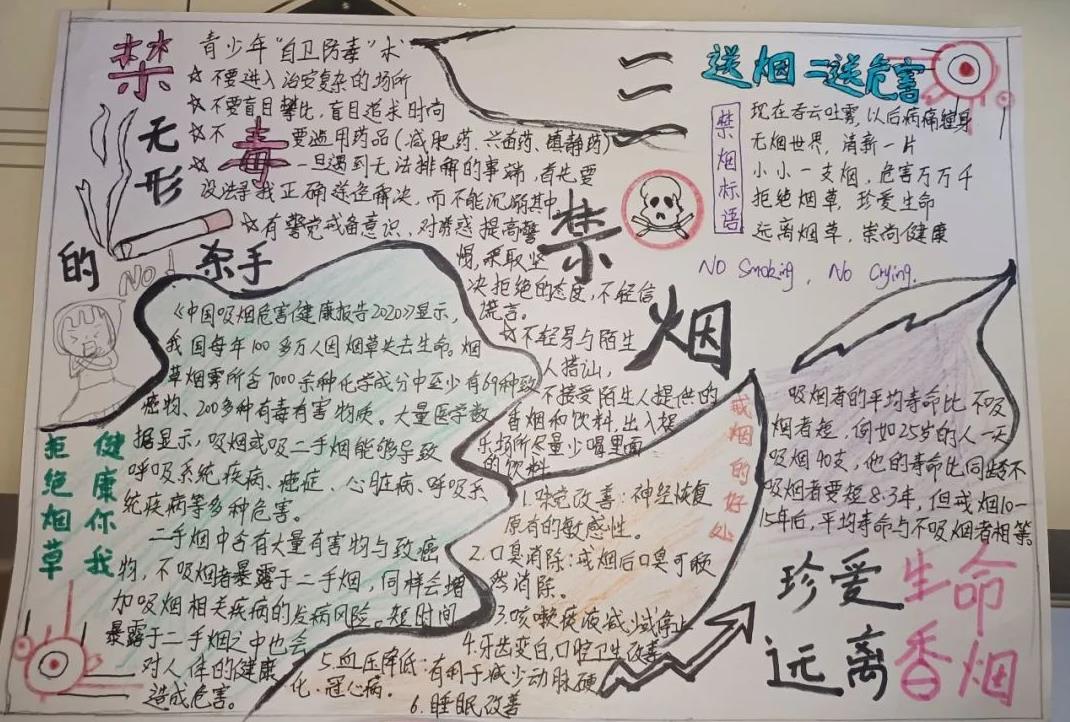 禁
毒
二
禁
烟
无形
的
杀手
NO!
青少年"自卫防毒"术
☆不要进入治安复杂的场所
☆不要盲目攀比，盲目追求时尚
☆不要滥用药品(减肥药、兴奋药、镇静药)
☆一旦遇到无法排解的事端，首先要
设法寻找正确途径解决，而不能沉溺其中
☆有警觉戒备意识，对诱惑提高警
惕，采取坚
决拒绝的态度，不轻信
谎言。
☆不轻易与陌生
人搭讪，
不接受陌生人提供的
香烟和饮料，出入娱
乐场所尽量少喝里面
的饮料
送烟=送危害
禁烟标语
现在吞云吐雾，以后病痛缠身
无烟世界，清新一片
小小一支烟，危害万万千
拒绝烟草，珍爱生命
远离烟草，崇尚健康
No Smoking, No Crying.
《中国吸烟危害健康报告2020》显示，
我国每年100多万人因烟草失去生命。烟
草烟雾所含7000余种化学成分中至少有69种致
癌物、200多种有毒有害物质。大量医学数
据显示，吸烟或吸二手烟能够导致
呼吸系统疾病、癌症、心脏病、呼吸系
统疾病等多种危害。
二手烟中含有大量有害物与致癌
物，不吸烟者暴露于二手烟，同样会增
加吸烟相关疾病的发病风险。短时间
暴露于二手烟之中也会
对人体的健康
造成危害。
健康你我
拒绝烟草
戒烟的好处
1.味觉改善：神经恢复
原有的敏感性。
2.口臭消除：戒烟后口臭可顺
然消除。
3.咳嗽痰液减少或停止
4.牙齿变白,口腔卫生改善
5.血压降低：有利于减少动脉硬
化、冠心病.
6.睡眠改善
吸烟者的平均寿命比不吸
烟者短，例如25岁的人一天
吸烟40支，他的寿命比同龄不
吸烟者要短8.3年，但戒烟10-
15年后，平均寿命与不吸烟者相等
珍爱生命
远离香烟